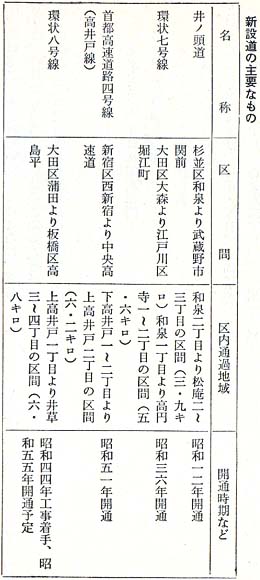 新設道の主要なもの
名称
区間
区内通過地域
開通時期など
井ノ頭道
杉並区和泉より武蔵野市
関前
和泉二丁目より松庵二〜
三丁目の区間(三・九キ
ロ)和泉一丁目より高円
昭和一二年開通
環状七号線
大田区大森より江戸川区
堀江町
寺一〜二丁目の区間(五
・六キロ)
昭和三六年開通
首都高速道路四号線
(高井戸線)
新宿区西新宿より中央高
速道
下高井戸一〜二丁目より
上高井戸二丁目の区間
(六・二キロ)
昭和五一年開通
環状八号線
大田区蒲田より板橋区高
島平
上高井戸一丁目より井草
三〜四丁目の区間(六・
八キロ)
昭和四四年工事着手、昭
和五五年開通予定